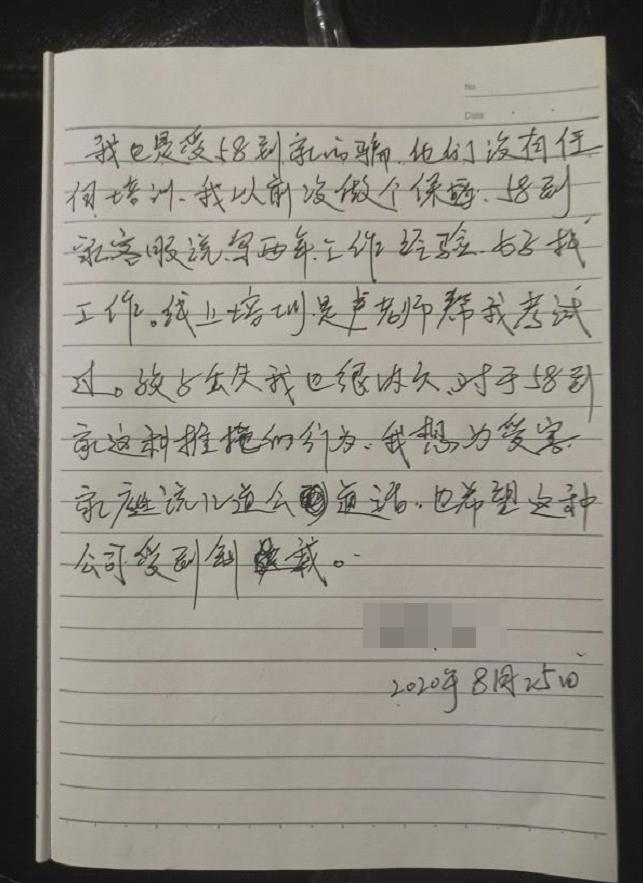 No
Date
我也是受58到家的骗、他们没有任
何培训、我以前没做个保姆、58到
家客服说写两年工作经验、好找
工作。线上培训是卢老师帮我考试
过。放占丢失我也很内久、对于58到
家这种推掩的行为、我想为受害
家庭说几道公道话、也希望这种
公司受到制裁。
2020年8月25日